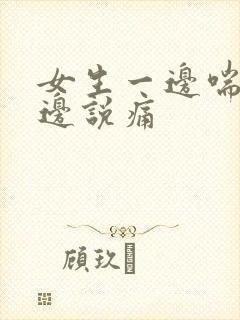 女生一邊喘
邊說痛
顧玖